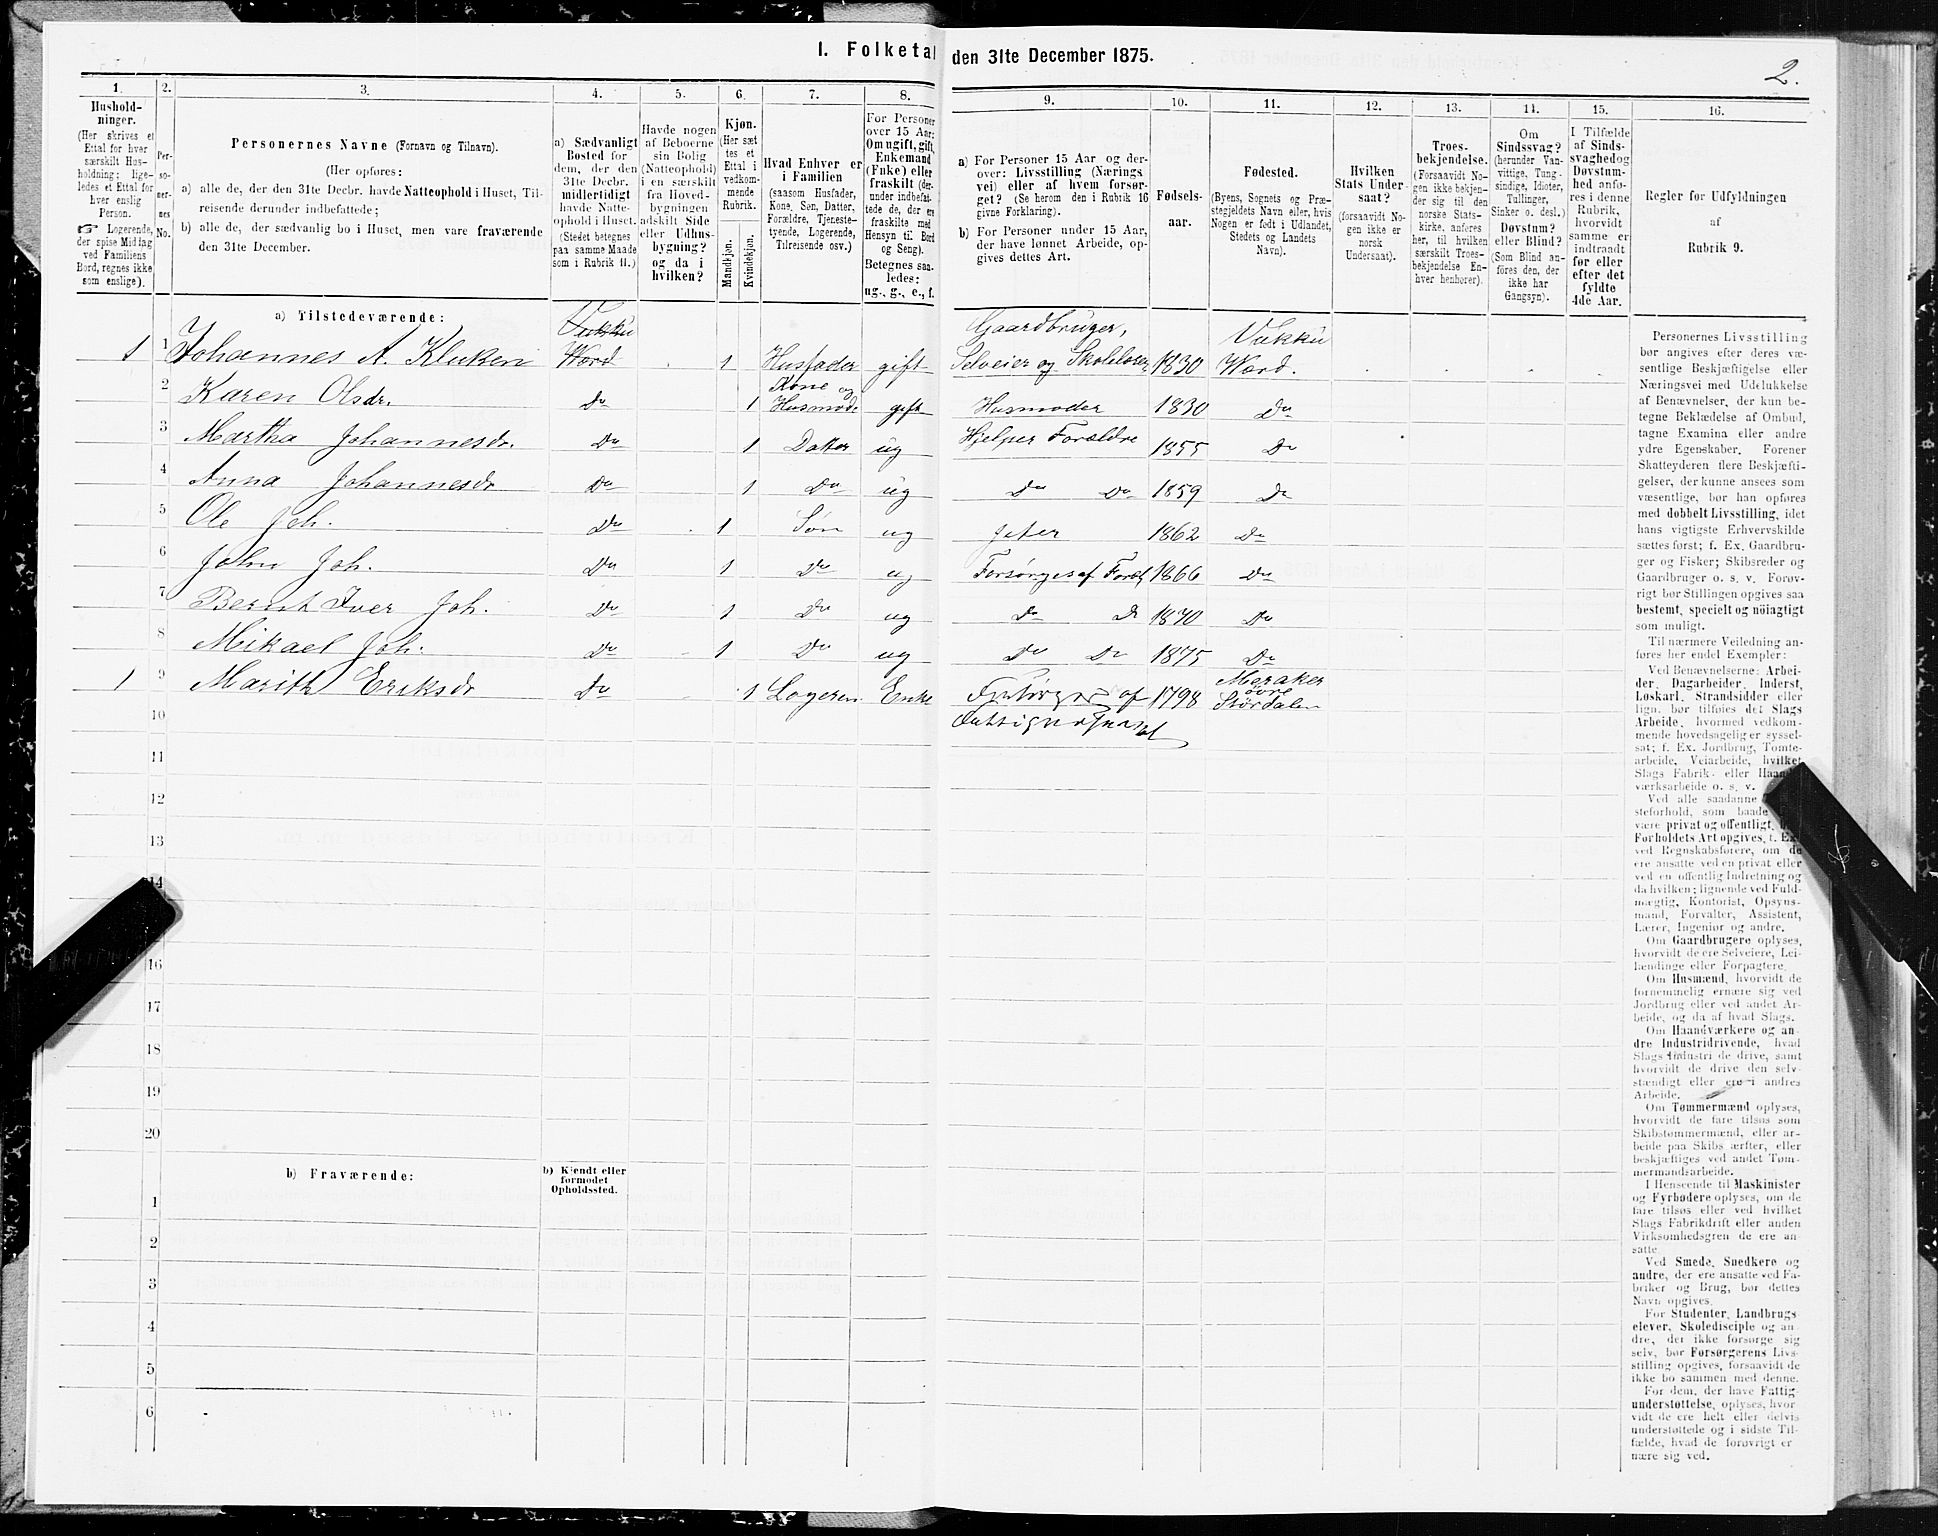 I. Folketal den 31te December 1875.
2.
1.
Hushold-
ninger.
(Her skrives et
Ettal for hver
særskilt Hus-
holdning; lige-
ledes et Ettal for
hver enslig
Person.
☞ Logerende,
der spise Middag
ved Familiens
Bord, regnes ikke
som enslige).
2.
Per-
so-
ner-
nes
No.
3.
Personernes Navne (Fornavn og Tilnavn).
(Her opføres:
a) alle de, der den 31te Decbr. havde Natteophold i Huset, Til-
reisende derunder indbefattede;
b) alle de, der sædvanlig bo i Huset, men vare fraværende
den 31te December.
4.
a) Sædvanligt
Bosted for
dem, der den
31te Decbr.
midlertidigt
havde Natte-
ophold i Huset.
(Stedet betegnes
paa samme Maade
som i Rubrik 11.)
5.
Havde nogen
af Beboerne
sin Bolig
(Natteophold)
i en særskilt
fra Hoved-
bygningen
adskilt Side
eller Udhus-
bygning?
og da i
hvilken?
6.
Kjøn.
(Her sæt
tes et
Ettal i
vedkom-
mende
Rubrik.
Mandkjøn.
Kvindekjøn.
7.
Hvad Enhver er
i Familien
(saasom Husfader,
Kone, Søn, Datter,
Forældre, Tjeneste-
tyende, Logerende,
Tilreisende osv.)
8.
For Personer
over 15 Aar:
Om ugift, gift,
Enkemand
(Enke) eller
fraskilt (der-
under indbefat-
tede de, der ere
fraskilte med
Hensyn til Bord
og Seng).
Betegnes saa-
ledes:
ug., g., e., f.
9.
a) For Personer 15 Aar og der-
over: Livsstilling (Nærings
vei) eller af hvem forsør-
get? (Se herom den i Rubrik 16
givne Forklaring).
b) For Personer under 15 Aar,
der have lønnet Arbeide, op-
gives dettes Art.
10.
Fødsels-
aar.
11.
Fødested.
(Byens, Sognets og Præ-
stegjeldets Navn eller, hvis
Nogen er født i Udlandet,
Stedets og Landets
Navn).
12.
Hvilken
Stats Under-
saat?
(forsaavidt No-
gen ikke er
norsk
Undersaat).
13.
Troes-
bekjendelse.
(Forsaavidt No-
gen ikke bekjen-
der sig til den
norske Stats-
kirke, anføres
her, til hvilken
særskilt Troes-
bekjendelse En-
hver henhører).
14.
Om
Sindssvag?
(herunder Van-
vittige, Tung-
sindige, Idioter,
Tullinger,
Sinker o. desl.)
Døvstum?
eller Blind?
(Som Blind an-
føres den, der
ikke har
Gangsyn).
15.
I Tilfælde
af Sinds-
svaghedog
Døvstum-
hed anfø-
res i denne
Rubrik,
hvorvidt
samme er
indtraadt
før eller
efter det
fyldte
4de Aar.
16.
Regler for Udfyldningen
af
Rubrik 9.
a) Tilstedeværende:
Vukku Gaardbruger, Vukku
1 1 Johannes A. Kluken Værd 1 Husfader gift Selveier og Skolelærer 1830 Værd.
2 Karen Olsdr. Do 1 Kone og Husmoder gift Husmoder 1830 Do
3 Martha Johannesdr. Do 1 Datter ug Hjelper Forældre 1855 Do
4 Anna Johannesdr Do 1 Do ug Do Do 1859 Do
5 Ole Joh. Do 1 Søn ug Jeter 1862 Do
6 John Joh. Do 1 Do ug Forsørges af Foræl 1866 Do
7 Bernt Iver Joh. Do 1 Do ug Do Do 1870 Do
8 Mikael Joh. Do 1 Do ug Do Do 1875 Do
1 9 Marith Eriksdr Do 1 Logeren Enke af 1798 Meraker øvre Størdalen
10
11
12
13
14
16
17
18
19
20
b) Fraværende:
b) Kjendt eller
formodet
Opholdssted.
1
2
3
4
5
6
Personernes Livsstilling
bør angives efter deres væ-
sentlige Beskjæftigelse eller
Næringsvei med Udelukkelse
af Benævnelser, der kun be-
tegne Beklædelse af Ombud,
tagne Examina eller andre
ydre Egenskaber. Forener
Skatteyderen flere Beskjæfti-
gelser, der kunne ansees som
væsentlige, bør han opføres
med dobbelt Livsstilling, idet
hans vigtigste Erhvervskilde
sættes først; f. Ex. Gaardbru-
ger og Fisker; Skibsreder og
Gaardbruger o. s. v. Forøv-
rigt bør Stillingen opgives saa
bestemt, specielt og nöiagtigt
som muligt.
Til nærmere Veiledning an-
føres her endel Exempler:
Ved Benævnelserne: Arbei-
der, Dagarbeider, Inderst,
Løskarl, Strandsidder eller
lign. bør tilføies det Slags
Arbeide, hvormed vedkom-
mende hovedsagelig er syssel-
sat; f. Ex. Jordbrug, Tomte-
arbeide, Veiarbeide, hvilket
Slags Fabrik- eller Haand-
værksarbeide o. s. v.
Ved alle saadanne
steforhold, som baade
være privat og offentligt,
Forholdets Art opgives, t. Ex.
ved Regnskabsførere, om de
ere ansatte ved en privat eller
ved en offentlig Indretning og
da hvilken; lignende ved Fuld-
mægtig, Kontorist, Opsyns-
mand, Forvalter, Assistent,
Lærer, Ingeniør og andre.
Om Gaardbrugere oplyses,
hvorvidt de ere Selveiere, Lei-
lændinge eller Forpagtere.
Om Husmænd, hvorvidt de
fornemmelig ernære sig ved
Jordbrug eller ved andet Ar-
beide, og da af hvad Slags.
Om Haandværkere og an-
dre Industridrivende, hvad
Slags Industri de drive, samt
hvorvidt de drive den selv-
stændigt eller ere i andres
Arbeide.
Om Tømmermænd oplyses,
hvorvidt de fare tilsøs som
Skibstømmermænd, eller ar-
beide paa Skibs ærfter, eller
beskjæftiges ved andet Tøm-
mermandsarbeide.
I Henseende til Maskinister
og Fyrbødere oplyses, om de
fare tilsøs eller ved hvilket
Slags Fabrikdrift eller anden
Virksomhedsgren de ere an-
satte.
Ved Smede, Snedkere og
andre, der ere ansatte ved Fa-
briker og Brug, bør dettes
Navn opgives.
For Studenter, Landbrugs
elever, Skoledisciple og an-
dre, der ikke forsørge sig
selv, bør Forsørgerens Livs-
stilling opgives, forsaavidt de
ikke bo sammen med denne.
For dem, der have Fattig-
understøttelse, oplyses, hvor
vidt de ere helt eller delvis
understøttede og i sidste Til-
fælde, hvad de forøvrigt er
nære sig ved.